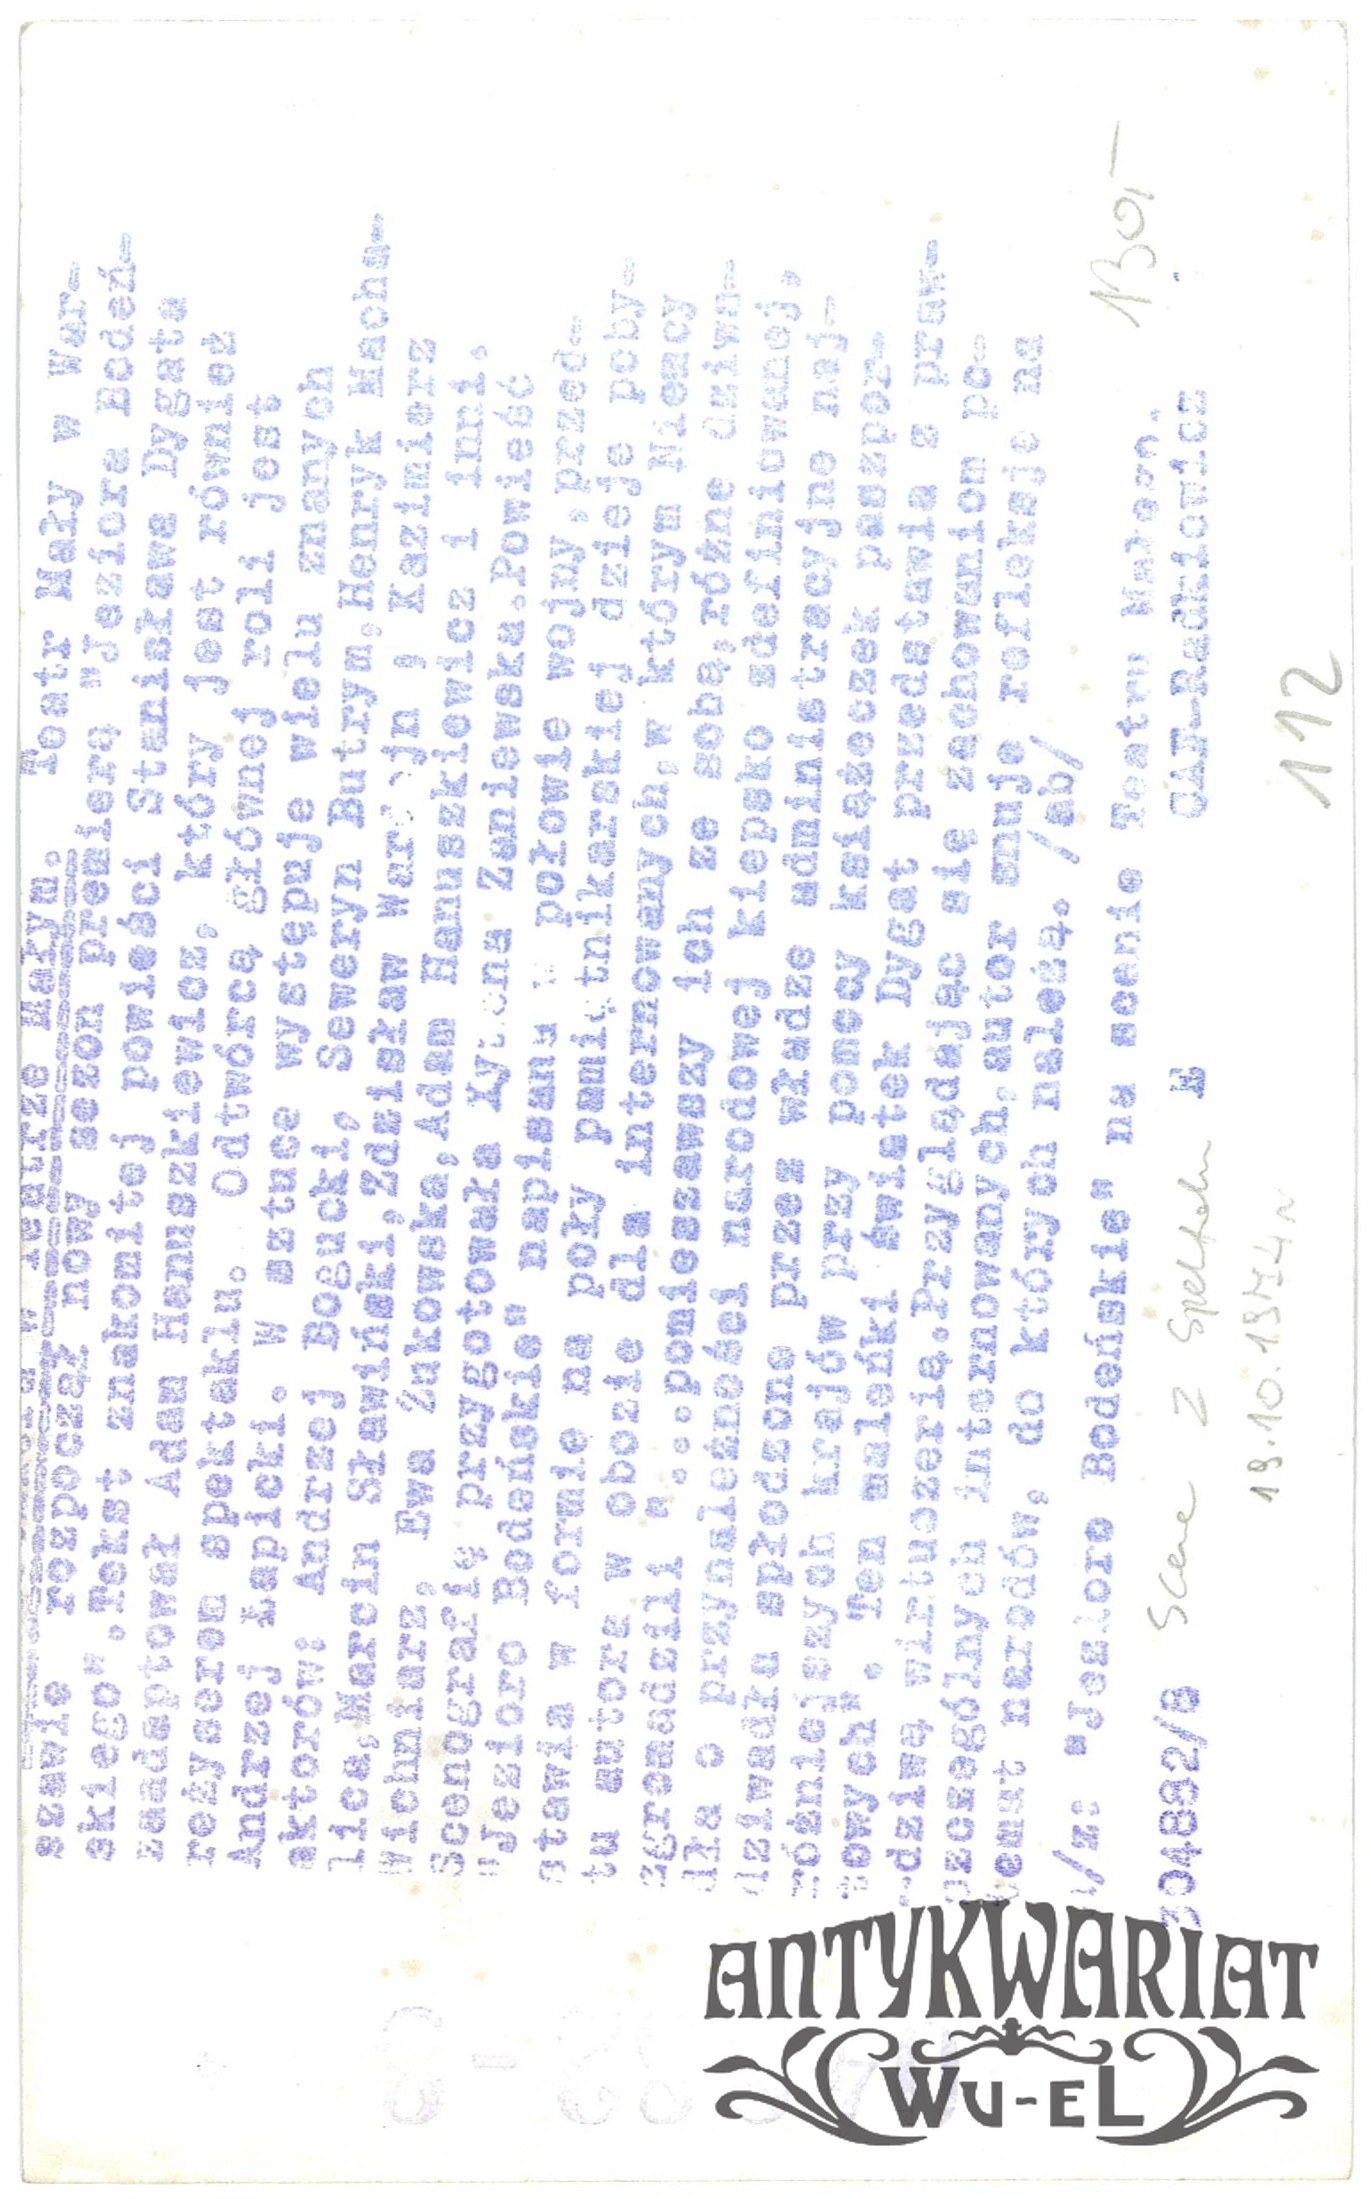 w Teatrze Małym.
Teatr Mały w War-
szawie rozpoczął nowy sezon premierą "Jeziora Bodeń-
skiego".Tekst znakomitej powieści Stanisława Dygata
zaadaptował Adam Hanuszkiewicz, który jest również
reżyserem spektaklu. Odtwórcą głównej roli jest
Andrzej Łapicki. W sztuce występuje wielu znanych
aktorów: Andrzej Bogucki, Seweryn Butrym,Henryk Macha-
lica,Marcin Sławiński,Zdzisław Wardejn , Kazimierz
Wichniarz, Ewa Żukowska,Adam Hanuszkiewicz i inni.
Scenografię przygotowała Xymena Zaniewska.Powieść
"Jezioro Bodeńskie" napisana w połowie wojny,przed-
stawia w formie na poły pamiętnikarskiej dzieje poby-
tu autora w obozie dla internowanych,w którym Niemcy
zgromadzili "...pomieszawszy ich ze sobą,różne dziwa-
dła o przynależności narodowej kiepsko zdefiniowanej,
dziwadła spłodzone przez władze administracyjne naj-
różniejszych krajów przy pomocy książeczek paszpor-
towych". Ten maleńki światek Dygat przedstawia z praw-
dziwą wirtuozerią.Przyglądając się zachowaniom po-
szczególnych internowanych,autor snuje refleksje na
temat narodów, do których należą. /ab/
n/z: "Jezioro Bodeńskie" na scenie Teatru Małego.
304882/8 E CAF-Radkiewicz
Scena z spektaklu
19.10.1974 r
130,-
112
ANTYKWARIAT
WU-EL